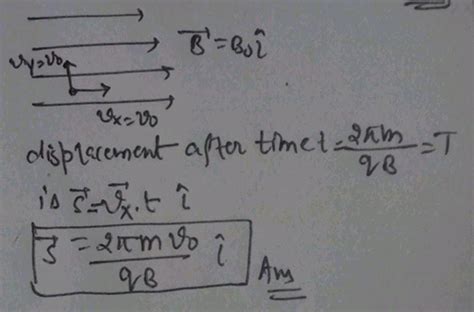 B⃗ = B₀î
vy=v₀
vx=v₀
displacement after time t = 2πm/qB = T
is S⃗ = v⃗x.t î
S⃗ = 2πmv₀/qB î
Ans